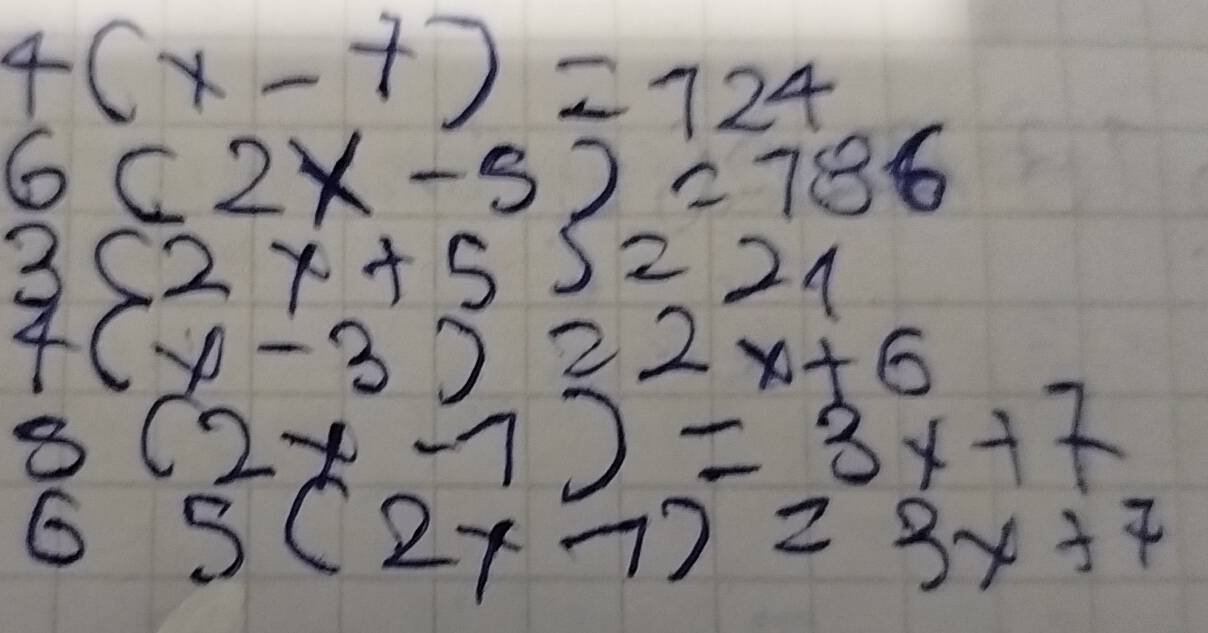 4(x-7)=124
6(2x-5)=186
3(2x+5)=21
4(x-3)=2x+6
8(2x-1)=3x+7
6 5(2x-1)=3x+7